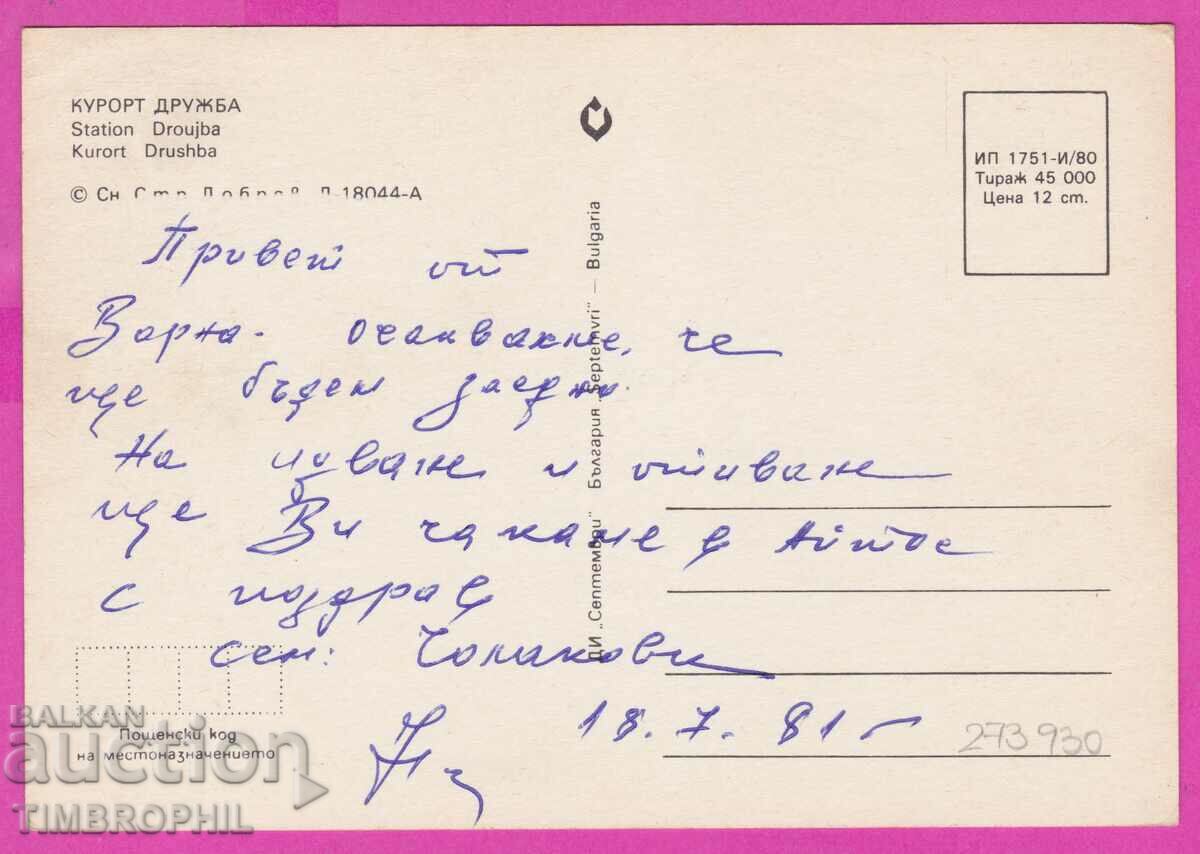 КУРОРТ ДРУЖБА
Station Droujba
Kurort Drushba
© Сн. Стр. Добрев Д-18044-А
ИП 1751-И/80
Тираж 45 000
Цена 12 ст.
ДИ „Септември" България „Septemvri" — Bulgaria
Привет от
Варна. Очакваме, че
ще бъдем заедно.
На идване и отиване
ще Ви чакаме в Айтос
с поздрав
сем: Чолакови
18.7.81 г
273930
Пощенски код
на местоназначението
BALKAN
auction
TIMBROPHIL